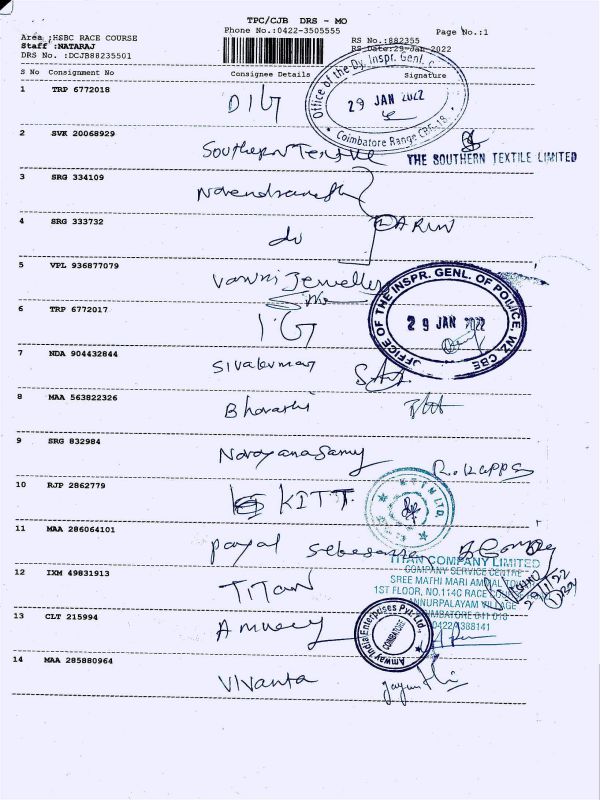 TPC/CJB DRS - MO
Phone No.:0422-3505555
Page No.:1
Area :HSBC RACE COURSE
RS No.:882355
Staff :NATARAJ
RS Date:29-Jan-2022
DRS No. :DCJB88235501
S No Consignment No Consignee Details Signature
Office of the Dy. Inspr. Genl.
29 JAN 2022
Coimbatore Range CBE-18
1 TRP 6772018 DIG
2 SVK 20068929 Southern Textile
THE SOUTHERN TEXTILE LIMITED
3 SRG 334109
4 SRG 333732 do
5 VPL 936877079 Vanni Jeweller
OFFICE OF THE INSPR. GENL. OF POLICE, WZ, CBE
29 JAN 2022
6 TRP 6772017 IG
7 NDA 904432844 Sivakumar
8 MAA 563822326 Bharathi
9 SRG 832984 Narayanasamy
10 RJP 2862779 KITT
11 MAA 286064101 Payal
TITAN COMPANY LIMITED
COMPANY SERVICE CENTRE
SREE MATHI MARI AMMAL
1ST FLOOR, NO.114C RACE
VILLAGE
COIMBATORE 641 018
12 IXM 49831913 Titan
29/1/22
13 CLT 215994 Amway
Amway India Enterprises Pvt. Ltd.
COIMBATORE
14 MAA 285880964 Vivanta